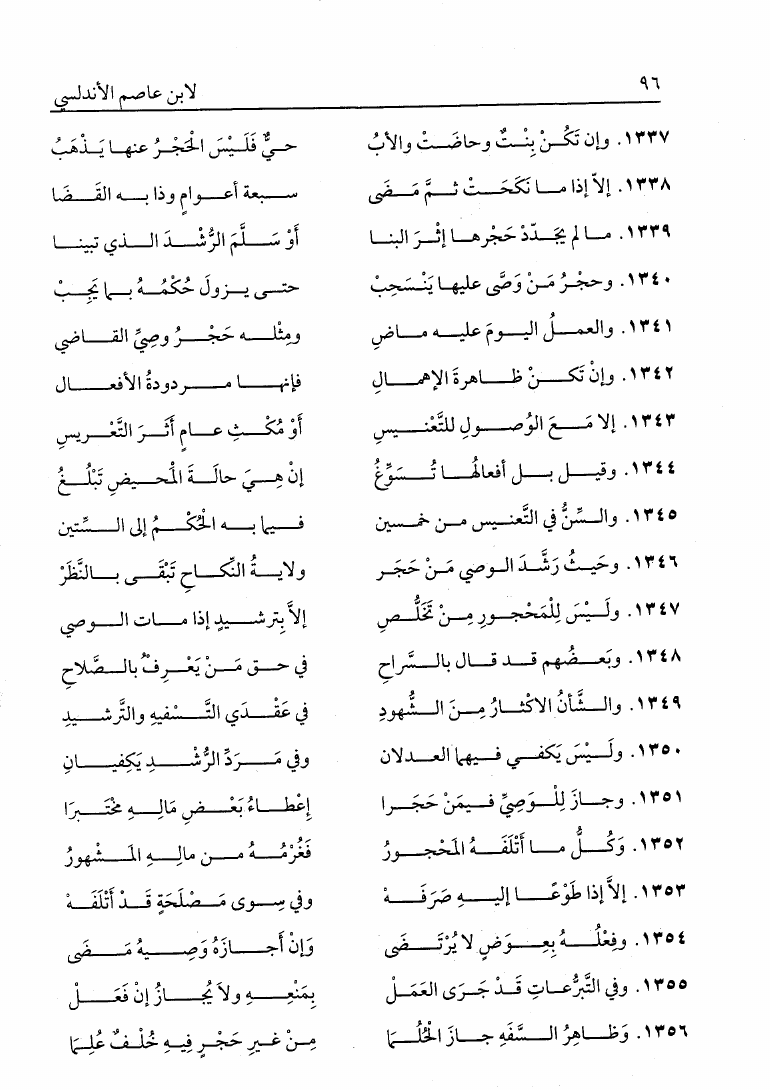 ٩٦ لابن عاصم الأندلسي
١٣٣٧. وإن تَكُنْ بِنْتٌ وحاضَتْ والأبُ حيٌّ فَلَيْسَ الحَجْرُ عنها يَذْهَبُ
١٣٣٨. إلاّ إذا ما نَكَحَتْ ثمَّ مَضَى سبعة أعوامٍ وذا به القَضَا
١٣٣٩. ما لم يُجَدّدْ حَجْرها إثْرَ البنا أوْ سَلَّمَ الرُّشْدَ الذي تبينا
١٣٤٠. وحجْرُ مَنْ وَصَّى عليها يَنْسَحِبْ حتى يزولَ حُكْمُهُ بما يَجِبْ
١٣٤١. والعملُ اليومَ عليه ماضِ ومِثْله حَجْرُ وصِيِّ القاضي
١٣٤٢. وإنْ تَكنْ ظاهرةَ الإهمالِ فإنها مردودةُ الأفعالِ
١٣٤٣. إلا مَعَ الوُصولِ للتَّعْنيسِ أوْ مُكْثِ عامٍ أَثَرَ التَّعْريسِ
١٣٤٤. وقيل بل أفعالُها تُسَوَّغُ إنْ هِيَ حالَةَ المُحيضِ تَبْلُغُ
١٣٤٥. والسِّنُّ في التَّعنيس من خمسين فيما به الحُكْمُ إلى السِّتين
١٣٤٦. وحَيثُ رَشَّدَ الوصي مَنْ حَجَر ولايةُ النِّكاحِ تَبْقَى بالنَّظَرْ
١٣٤٧. ولَيْسَ لِلمَحْجورِ مِنْ تَخَلُّصِ إلاَّ بِترشيدٍ إذا مات الوصي
١٣٤٨. وبَعضُهم قد قال بالسَّراحِ في حق مَنْ يَعْرِفُ بالصَّلاحِ
١٣٤٩. والشَّأنُ الاكثارُ مِنَ الشُّهودِ في عَقْدَي التَّسْفيهِ والتَّرشيدِ
١٣٥٠. ولَيْسَ يَكفي فيهما العدلان وفي مَرَدِّ الرُّشْدِ يَكفِيانِ
١٣٥١. وجازَ لِلْوَصِيِّ فيمَنْ حَجَرا إعْطاءُ بَعْضِ مَالِهِ مخْتَبِرَا
١٣٥٢. وَكُلُّ ما أَتْلَفَهُ المَحْجورُ فَغُرْمُهُ من مالِهِ المَشْهورُ
١٣٥٣. إلاَّ إذا طَوْعًا إليهِ صَرَفَهْ وفي سِوى مَصْلَحَةٍ قَدْ أَتْلَفَهْ
١٣٥٤. وفِعْلُهُ بِعِوَضٍ لا يُرْتَضَى وَإنْ أجازَهُ وَصِيهُ مَضَى
١٣٥٥. وفي التَّبرُّعاتِ قَدْ جَرَى العَمَلْ بِمَنْعِهِ ولاَ يُجازُ إنْ فَعَلْ
١٣٥٦. وَظَاهِرُ السَّفَهِ جازَ الحُلُمَا مِنْ غيرِ حَجْرٍ فيهِ خُلْفٌ عُلِمَا